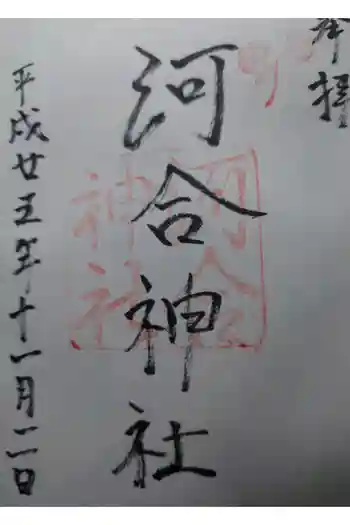 奉拝
河合神社
平成廿五年十一月二日